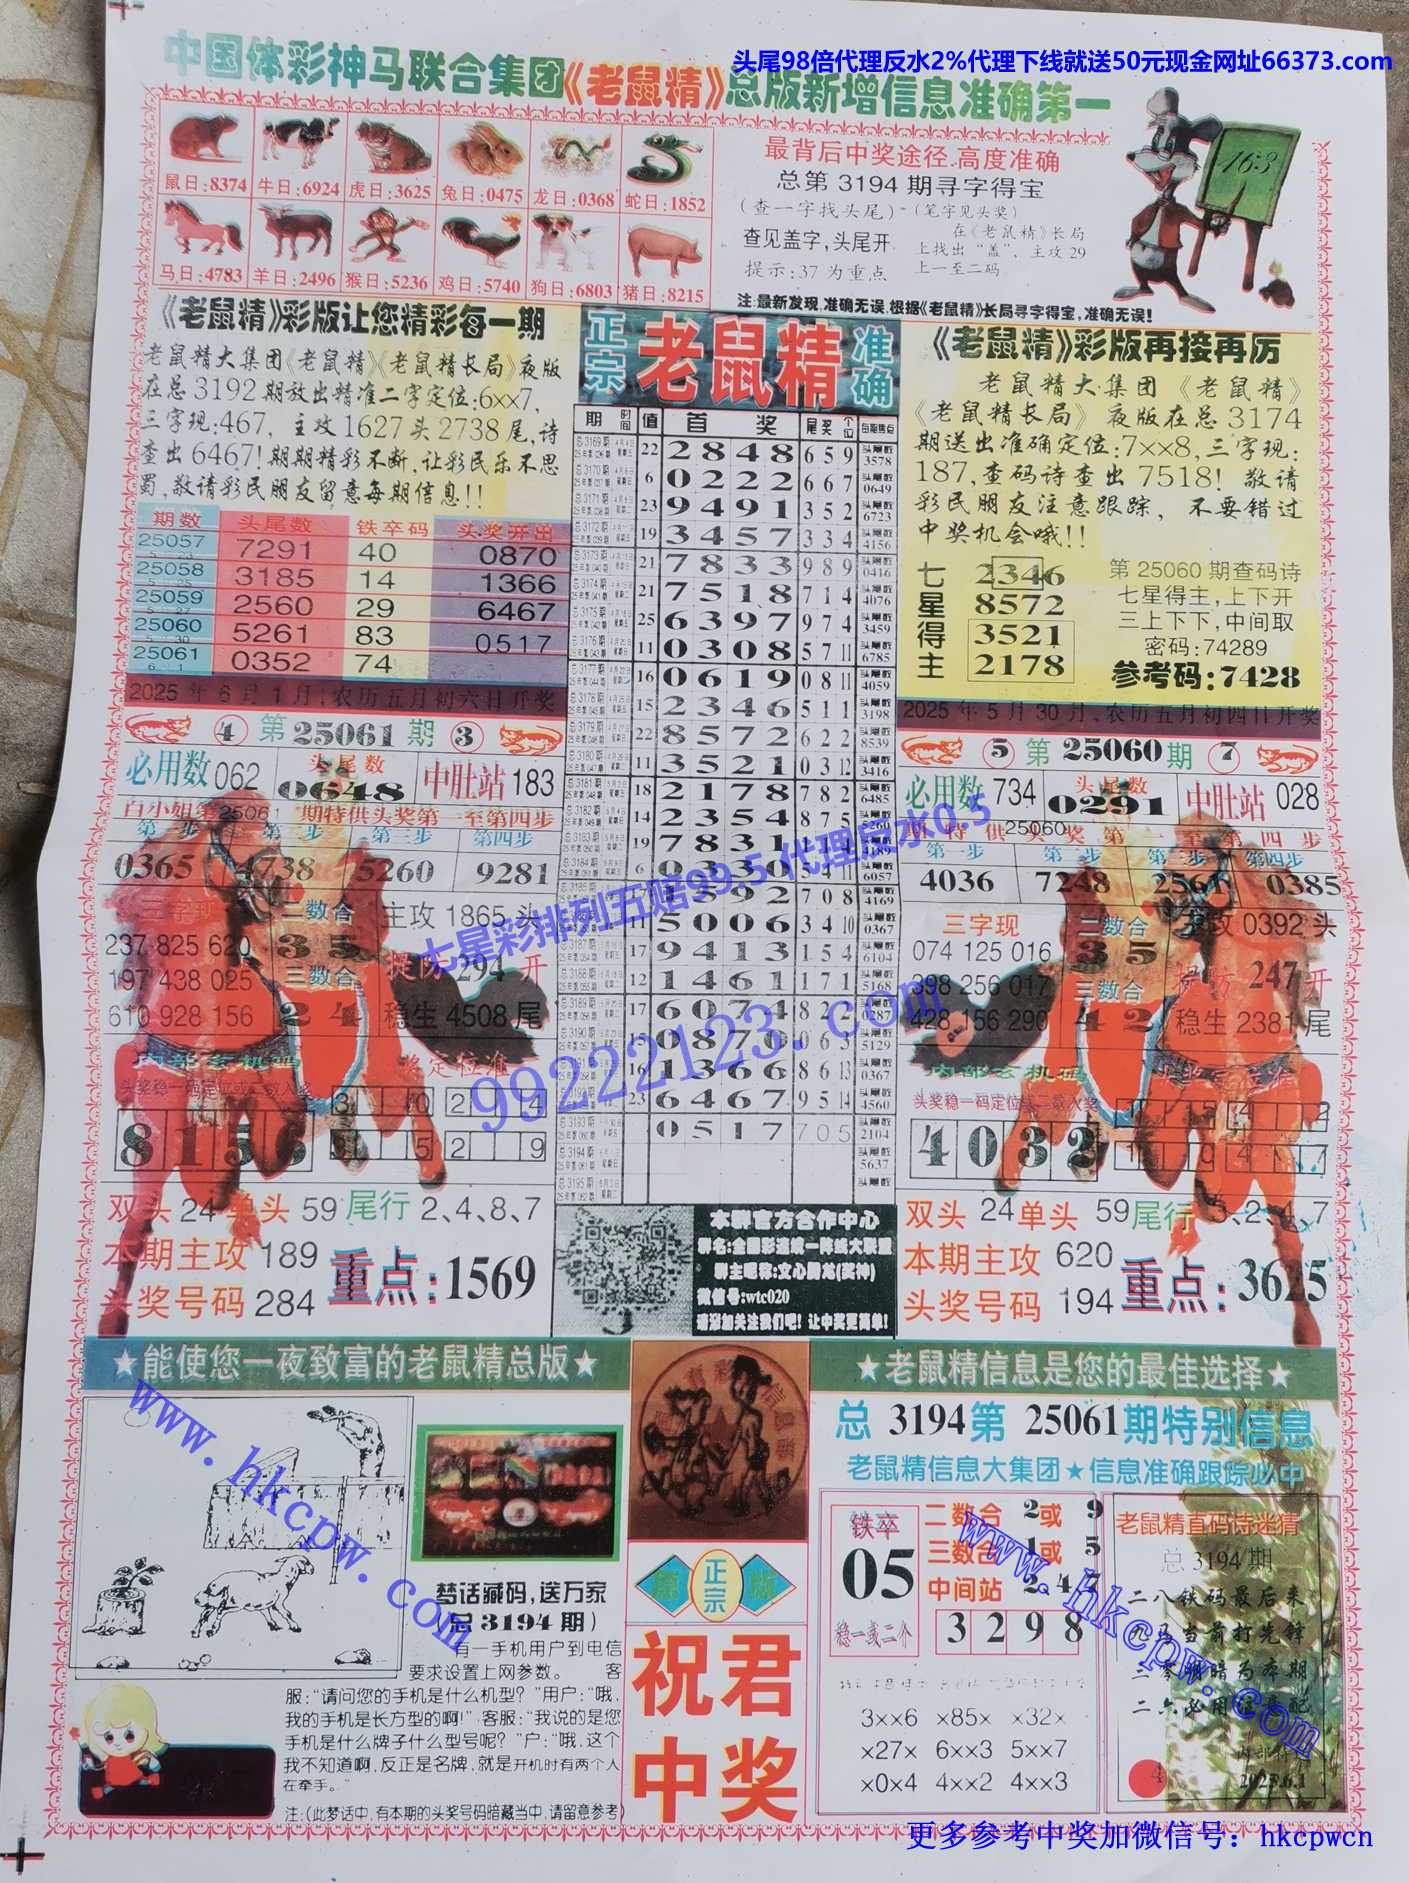 头尾98倍代理反水2%代理下线就送50元现金网址66373.com
中国体彩神马联合集团《老鼠精》总版新增信息准确第一
鼠日:8374 牛日:6924 虎日:3625 兔日:0475 龙日:0368 蛇日:1852
马日:4783 羊日:2496 猴日:5236 鸡日:5740 狗日:6803 猪日:8215
最背后中奖途径.高度准确
总第 3194 期寻字得宝
(查一字找头尾)-(笔字见头奖)
查见盖字,头尾开
提示:37 为重点
在《老鼠精》长局
上找出“盖”，主攻29
上一至二码
注:最新发现,准确无误,根据《老鼠精》长局寻字得宝,准确无误!
163
《老鼠精》彩版让您精彩每一期
老鼠精大集团《老鼠精》《老鼠精长局》夜版
在总3192期放出精准二字定位:6xx7,
三字现:467, 主攻1627头2738尾,诗
查出6467!期期精彩不断,让彩民乐不思
蜀,敬请彩民朋友留意每期信息!!
期数 头尾数 铁卒码 头奖开出
25057 7291 40 0870
25058 3185 14 1366
25059 2560 29 6467
25060 5261 83 0517
25061 0352 74
正宗 老鼠精 准确
期 时间 值 首奖 尾奖 个位 每期焦点
总3169期 22 2848 6 5 9 3578
总3170期 6 0222 6 6 7 0649
总3171期 23 9491 3 5 2 6723
总3172期 19 3457 3 3 4 4156
总3173期 21 7833 9 8 9 0416
总3174期 21 7518 7 1 4 4076
总3175期 25 6397 9 7 4 3459
总3176期 11 0308 5 7 11 6785
总3177期 16 0619 0 8 11 4059
总3178期 15 2346 5 1 1 3198
总3179期 22 8572 6 2 2 8539
总3180期 11 3521 0 3 12 3416
总3181期 18 2178 7 8 2 6485
总3182期 14 2354 8 7 5
总3183期 19 7831
总3184期 6 0330 5 4 11 6057
7 0 8 4169
11 5006 3 4 10 0367
总3187期 17 9413 1 5 4 6104
总3188期 12 1461 1 7 1 5168
总3189期 17 6074 8 2 2 0287
总3190期 15 0876 0 6 3 5129
16 1366 8 6 13 0367
23 6467 9 5 14 4560
总3193期 0517 7 0 5 2104
总3194期 5637
总3195期
《老鼠精》彩版再接再厉
老鼠精大集团《老鼠精》
《老鼠精长局》夜版在总3174
期送出准确定位:7××8,三字现:
187,查码诗查出7518! 敬请
彩民朋友注意跟踪, 不要错过
中奖机会哦!!
七星得主
2346
8572
3521
2178
第 25060 期查码诗
七星得主,上下开
三上下下,中间取
密码:74289
参考码:7428
2025 年 6 月 1 月,农历五月初六日开奖
④ 第 25061 期 ③
必用数 062 头尾数 0648 中肚站 183
百小姐第25061期特供头奖第一至第四步
第一步 第二步 第三步 第四步
0365 4738 5260 9281
三字现
237 825 620
197 438 025
610 928 156
二数合
3 5
三数合
2 4
主攻 1865 头
提防 294 开
稳生 4508 尾
内部玄机码
奖定位准
头奖稳一码定位或二数入奖
双头 24 单头 59 尾行 2、4、8、7
本期主攻 189
头奖号码 284
重点:1569
2025年5月30月、农历五月初四日开奖
⑤ 第 25060 期 ⑦
必用数 734 头尾数 0291 中肚站 028
期特供头奖第一至第四步
25060
第一步 第二步 第三步 第四步
4036 7248 2561 0385
三字现
074 125 016
398 256 017
428 156 290
二数合
3 5
三数合
4 2
主攻 0392 头
提防 247 开
稳生 2381 尾
内部玄机码
头奖稳一码定位或二数入奖
4032
双头 24 单头 59 尾行 3、2、4、7
本期主攻 620
头奖号码 194
重点:3625
七星彩排列五赔99.5代理反水0.5
99222123.com
本群官方合作中心
群名:全国彩连线一阵线大联盟
群主昵称:文心腾龙(奖神)
微信号:wtc020
请添加关注我们吧! 让中奖更简单!
★能使您一夜致富的老鼠精总版★
www.hkcpw.com
梦话藏码,送万家
(总 3194 期)
有一手机用户到电信
要求设置上网参数。 客
服:“请问您的手机是什么机型?”用户:“哦,
我的手机是长方型的啊!”,客服:“我说的是您
手机是什么牌子什么型号呢? ”户:“哦,这个
我不知道啊,反正是名牌,就是开机时有两个人
在牵手。”
注:(此梦话中,有本期的头奖号码暗藏当中,请留意参考)
正宗
祝君
中奖
★老鼠精信息是您的最佳选择★
总 3194 第 25061 期特别信息
老鼠精信息大集团★信息准确跟踪必中
铁卒
05
稳一或二个
二数合 2 或 9
三数合 1 或 5
中间站 2 4 7
3 2 9 8
3××6 ×85× ×32×
×27× 6××3 5××7
×0×4 4××2 4××3
老鼠精直码诗迷猜
总 3194 期
二八铁码最后来
九马当前打先锋
三零明暗为本期
二六必用往高配
2025.6.1
www.hkcpw.com
更多参考中奖加微信号: hkcpwcn